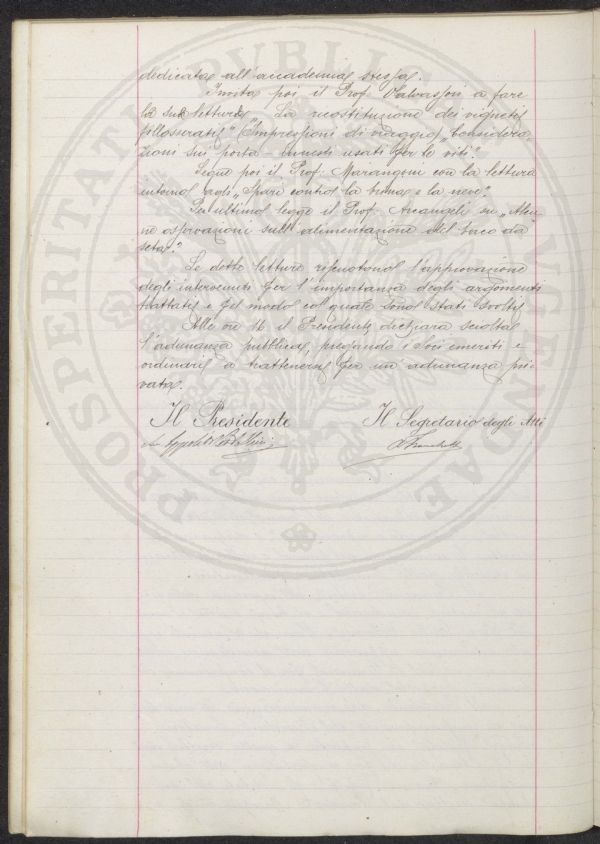 dedicata all'accademia stessa.
Invita poi il Prof. Valvassori a fare
la sua lettura „La ricostituzione dei vigneti
fillosserati" (Impressioni di viaggio) „Considera-
zioni sui porta-innesti usati per le viti".
Segue poi il Prof. Marangoni con la lettura
intorno agli „Spari contro la brina e la neve".
Per ultimo legge il Prof. Arcangeli su „Alcu-
ne osservazioni sull'alimentazione del baco da
seta".
Le dette letture riscuotono l'approvazione
degli intervenuti per l'importanza degli argomenti
trattati e pel modo col quale sono stati svolti.
Alle ore 16 il Presidente dichiara sciolta
l'adunanza pubblica, pregando i Soci emeriti e
ordinari a trattenersi per un'adunanza pri-
vata.
Il Presidente Il Segretario degli Atti
PROSPERITATI PVBLICAE AVGENDAE